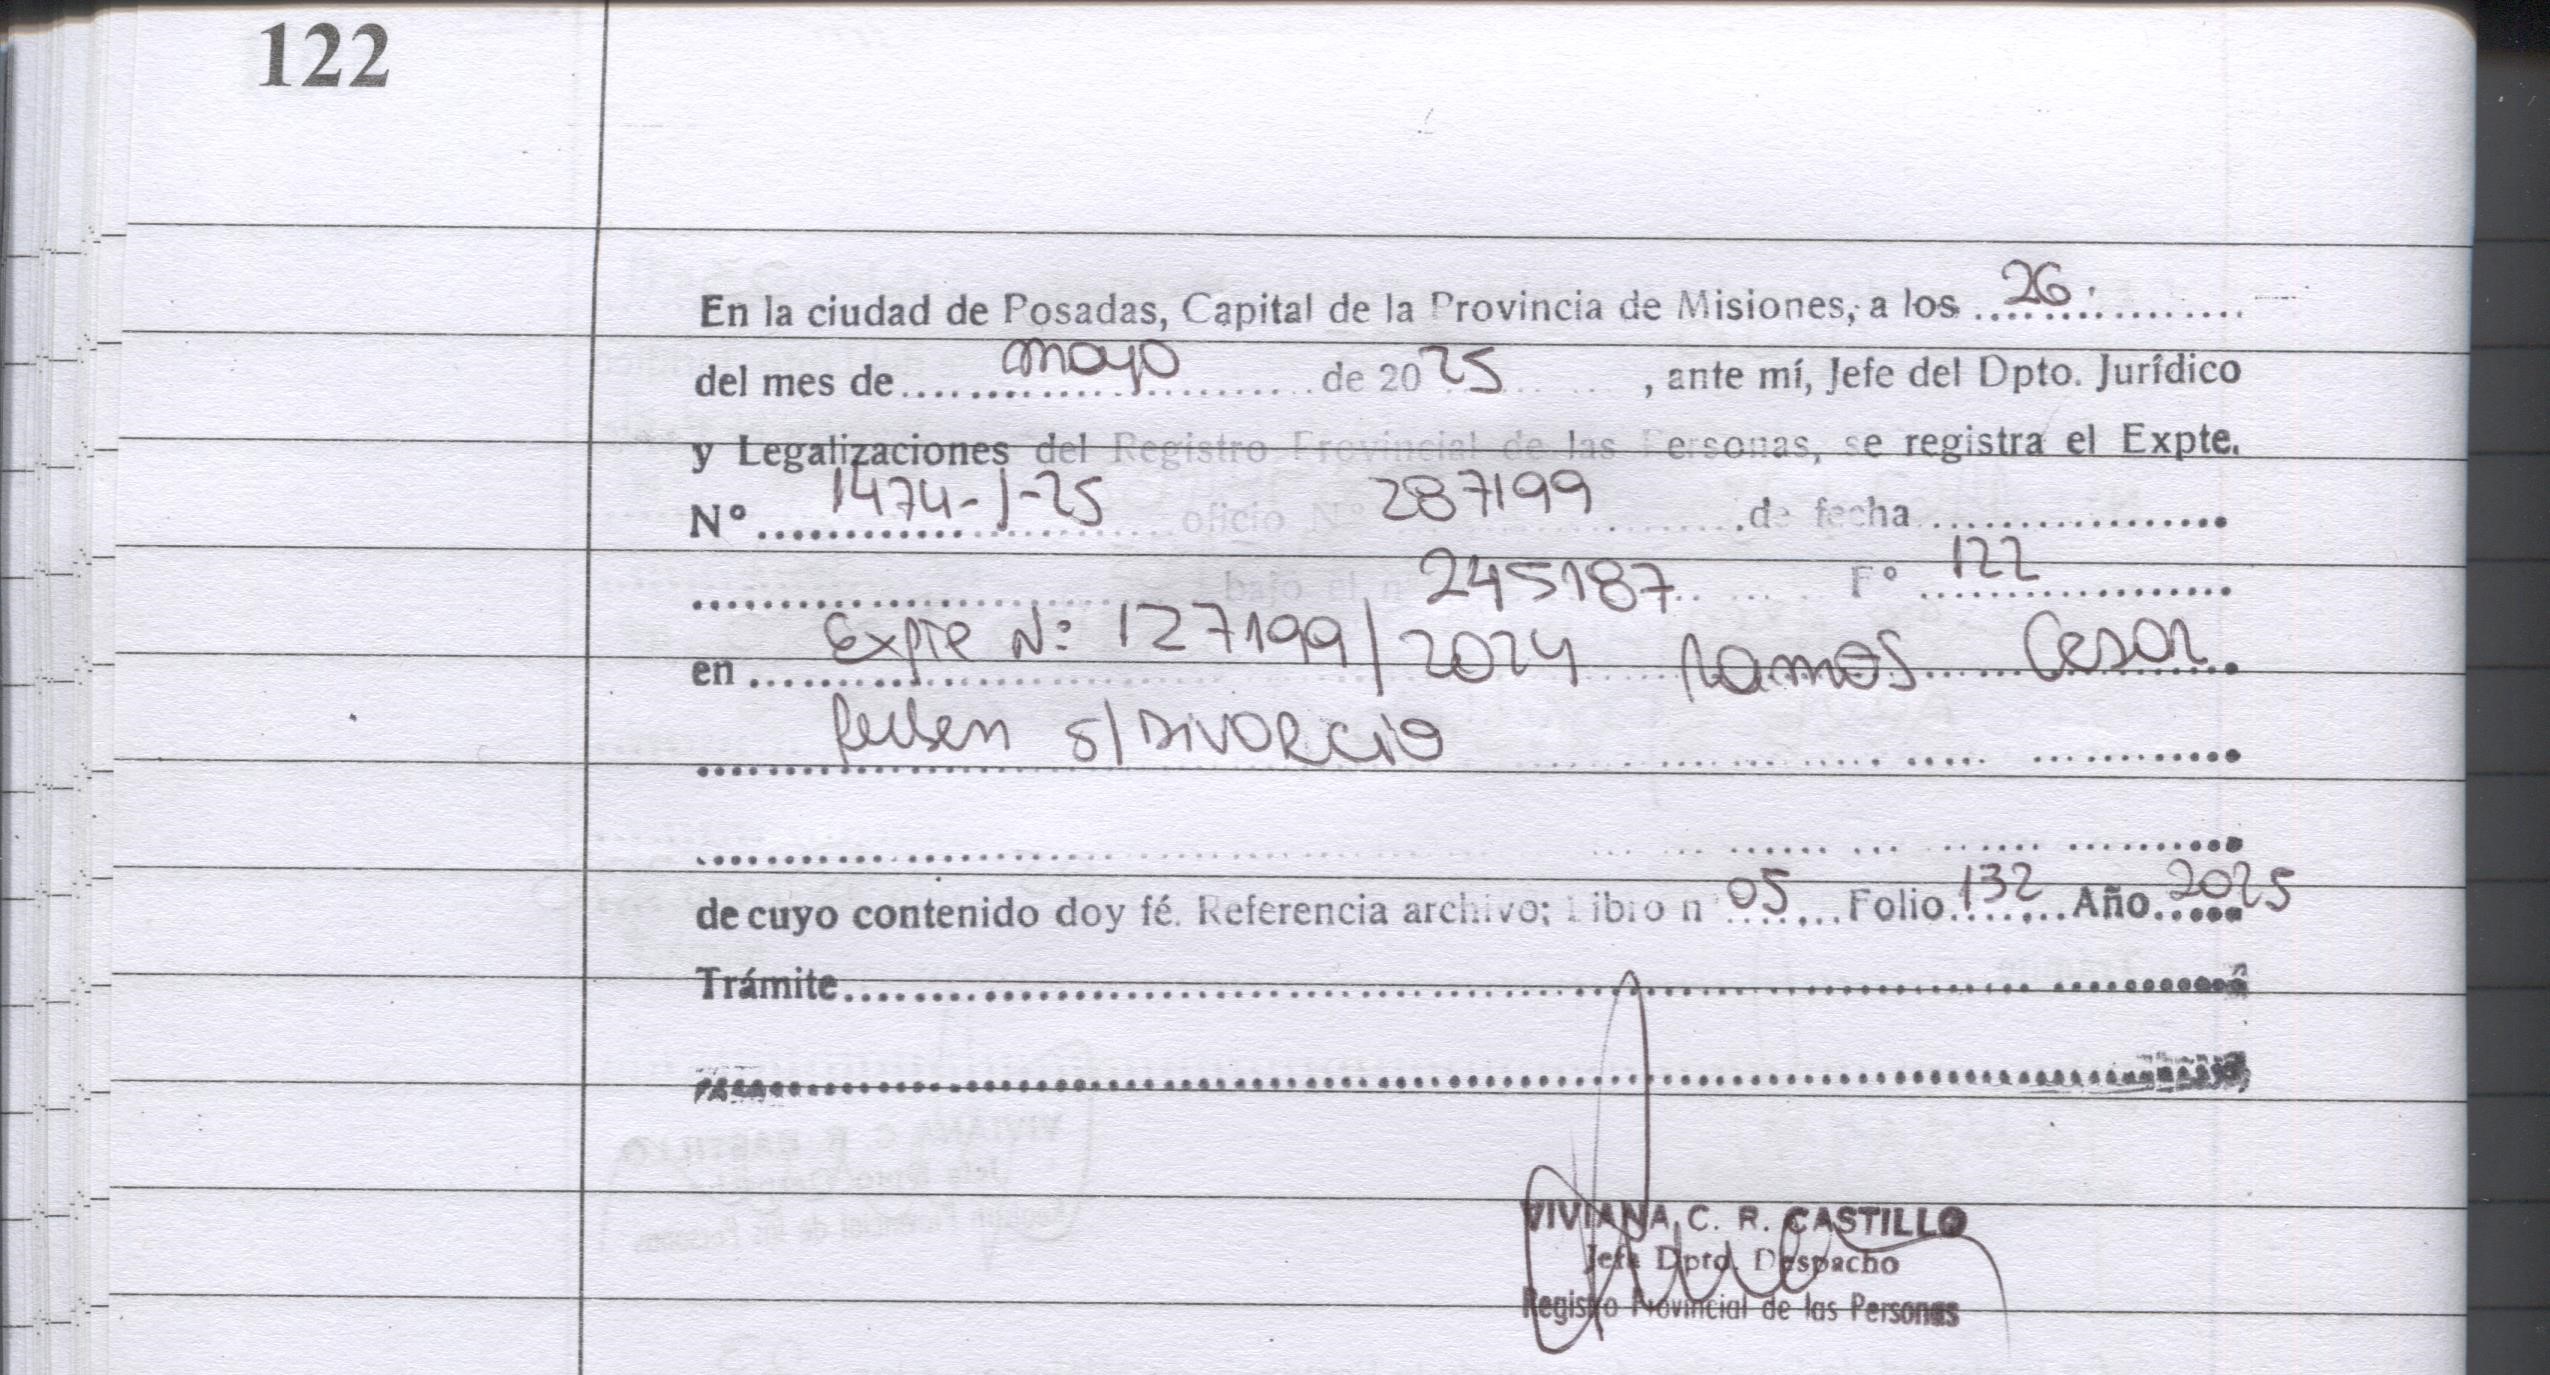 122
En la ciudad de Posadas, Capital de la Provincia de Misiones, a los 26
del mes de mayo de 2025, ante mí, Jefe del Dpto. Jurídico
y Legalizaciones del Registro Provincial de las Personas, se registra el Expte.
N° 1474-J-25 oficio N° 287199 de fecha
bajo el n° 245187 F° 122
en Expte N: 127199/2024 Ramos Cesar
Ruben s/ DIVORCIO
de cuyo contenido doy fé. Referencia archivo; Libro n° 05 Folio 132 Año 2025
Trámite
VIVIANA C. R. CASTILLO
Jefa Dpto. Despacho
Registro Provincial de las Personas